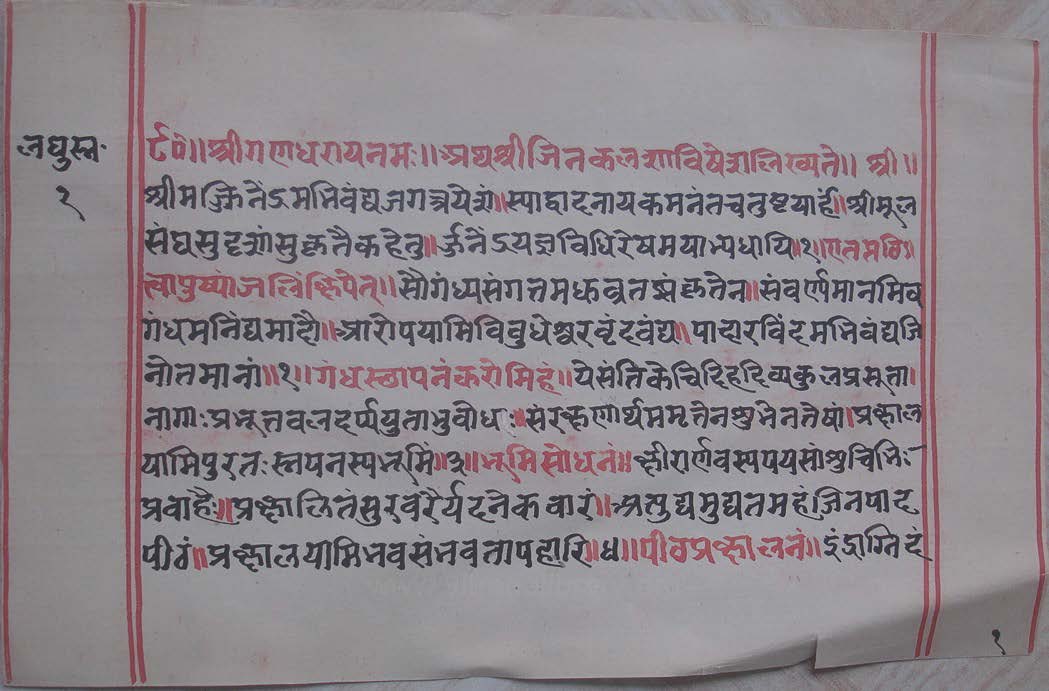 लघुस्न॰
१
॥श्रीगणधरायनमः॥अथश्रीजिनकलशाविषेशलिख्यते॥ श्री॥
श्रीमज्जिनेंऽमभिवंद्यजगत्रयेशं॥स्याद्वादनायकमनंतचतुष्टयार्हं॥श्रीमूल
संघसुदृशांसुकृतैकहेतु॥र्जैनेंऽयज्ञविधिरेषमयाभ्यधायि॥१॥एतत्पठि
त्वापुष्पांजलिंक्षिपेत्॥सौगंध्यसंगतमधुव्रतझंकृतेन॥संवर्ण्यमानमिव
गंधमनिंद्यमादौ॥आरोपयामिविबुधेश्वरवृंदवंद्य॥पादारविंदमभिवंद्यजि
नोतमानां॥२॥गंधस्छापनंकरोमिहं॥येसंतिकेचिदिहदिव्यकुलप्रसूता।
नागाःप्रभूतबलदर्प्पयुताभुवोधः॥संरक्षणार्थममृतेनशुभेनतेषां॥प्रक्षाल
यामिपुरतःस्नपनस्यभूमिं॥३॥भूमिसोधनं॥क्षीरार्णवस्यपयसांशुचिभिः
प्रवाहैः॥प्रक्षालितंसुरवरैर्यदनेकवारं॥अत्युद्यमुद्यतमहंजिनपाद
पीठं॥प्रक्षालयामिभवसंभवतापहारि॥४॥पीठप्रक्षालनं॥इंद्राग्निदं
१